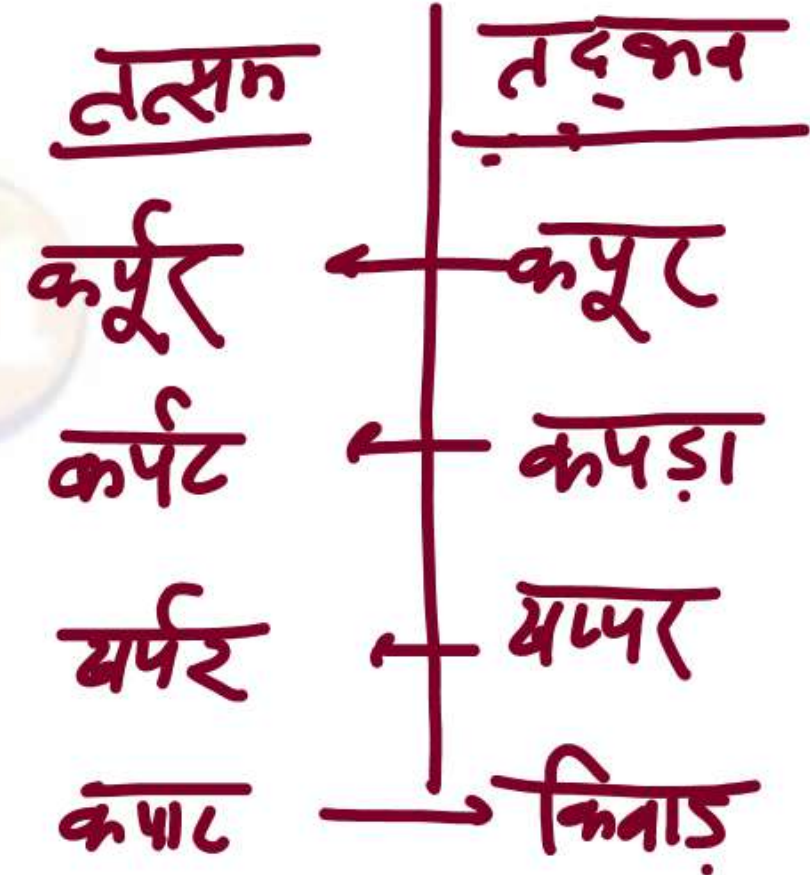 तत्सम तद्भव
कर्पूर कपूर
कर्पट कपड़ा
खर्पर खप्पर
कपाट किवाड़